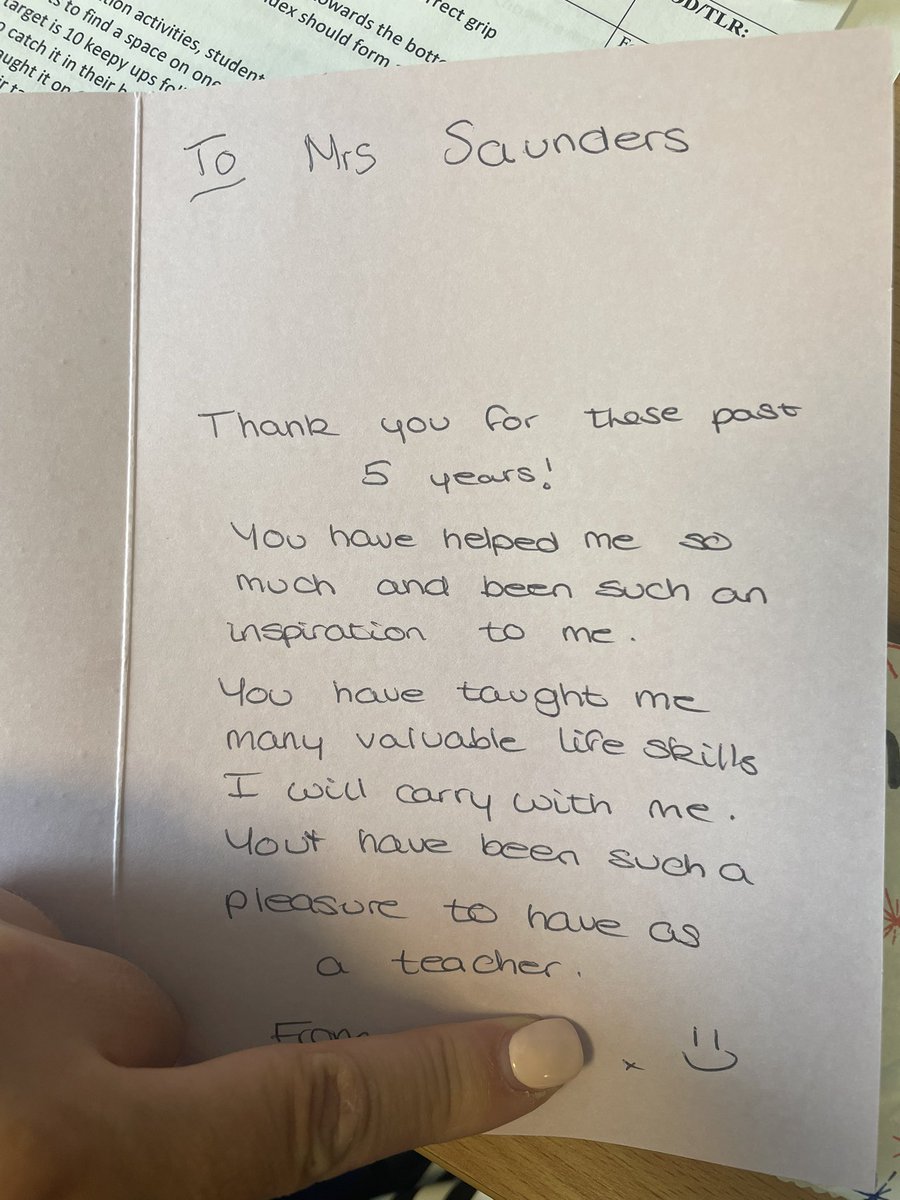 ion activities, student
s to find a space on one
target is 10 keepy ups
o catch it in their
aught it on
owards the
rrect grip
dex should form
OD/TLR:
To Mrs Saunders
Thank you for these past
5 years!
You have helped me so
much and been such an
inspiration to me.
You have taught me
many valuable life skills
I will carry with me.
You have been such a
pleasure to have as
a teacher.
From
x